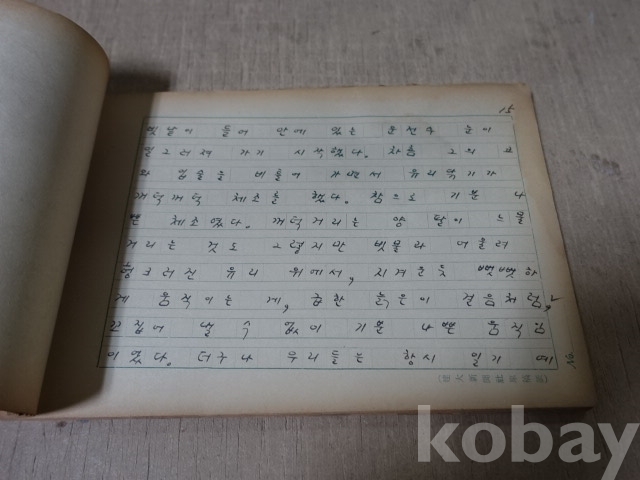 15
빗발이 들어 안에 있는 운전수 눈이
일그러져 가기 시작했다. 차츰 그의 코
와 입술을 비틀어 가면서 유리 악기가
꺼덕꺼덕 체조를 했다. 참으로 기분 나
쁜 체조였다. 꺼덕거리는 양 팔이 느물
거리는 것도 그렇지만 빗물과 어울려
헝크러진 유리 위에서, 지겨운 듯 뻣뻣하
게 움직이는 게, 급한 늙은이 걸음처럼,
끈질어 낼 수 없이 기분 나쁜 움직임
이었다. 더구나 우리들은 항시 일기 예
No.
kobay